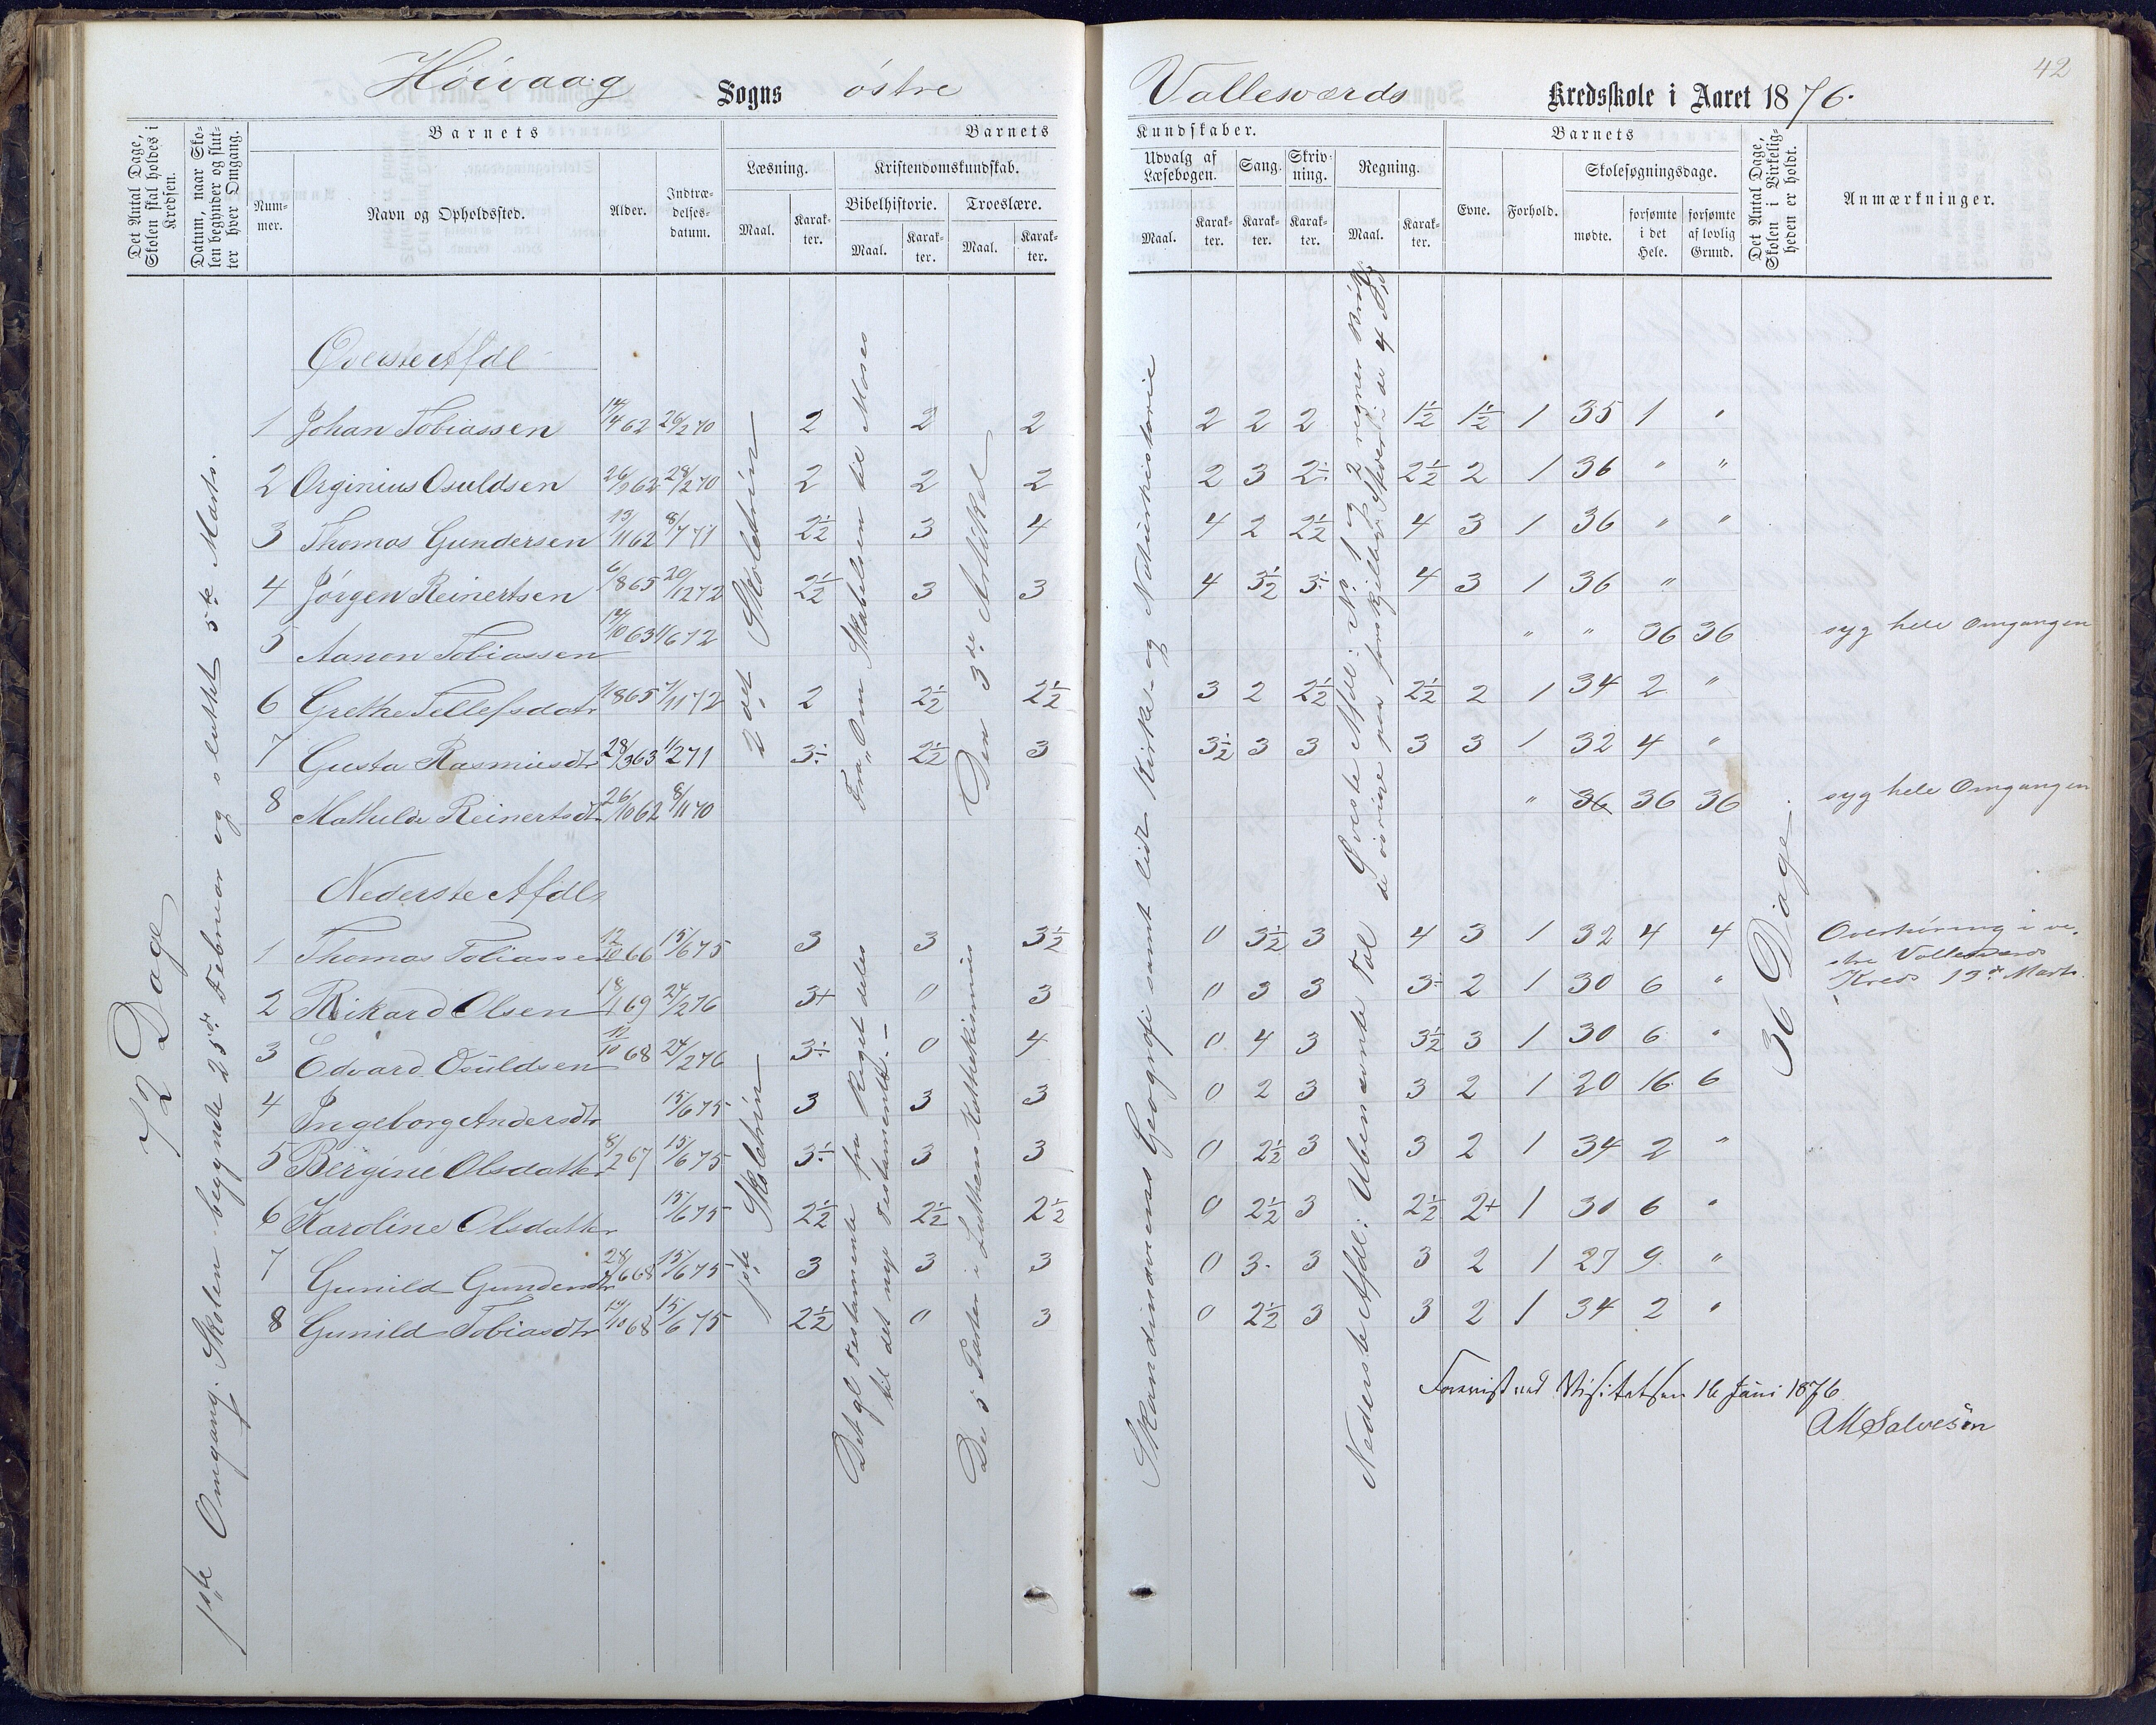 42
Höivaag Sogns östre Vallesværds Kredsskole i Aaret 1876.
Det Antal Dage, Skolen skal holdes i Kredsen.
Datum, naar Skolen begynder og slutter hver Omgang.
Barnets
Nummer.
Navn og Opholdssted.
Alder.
Indtrædelsesdatum.
Barnets
Læsning.
Maal.
Karakter.
Kristendomskundskab.
Bibelhistorie.
Maal.
Karakter.
Troeslære.
Maal.
Karakter.
Kundskaber.
Udvalg af Læsebogen.
Maal.
Karakter.
Sang.
Karakter.
Skrivning.
Karakter.
Regning.
Maal.
Karakter.
Barnets
Evne.
Forhold.
Skolesøgningsdage.
mødte.
forsømte i det Hele.
forsømte af lovlig Grund.
Det Antal Dage, Skolen i Virkeligheden er holdt.
Anmærkninger.
72 Dage
1ste Omgang. Skolen begyndte 25de Februar og sluttet 5te Marts.
Øverste Afdl
1 Johan Tobiassen 14/4 62 26/2 70 2 2 2 2 2 2 1½ 1½ 1 35 1 "
2 Orginius Osuldsen 26/9 62 28/2 70 2 2 2 2 3 2÷ 2½ 2 1 36 " "
3 Thomas Gundersen 13/11 62 8/7 71 2½ 3 4 4 2 2½ 4 3 1 36 " "
4 Jörgen Reinertsen 6/8 65 20/12 72 2½ 3 3 4 3½ 3÷ 4 3 1 36 "
5 Aanon Tobiassen 14/10 63 1/6 72 " " 36 36 syg hele Omgangen
6 Grethe Tellefsdatr 1/8 65 7/11 72 2 2½ 2½ 3 2 2½ 2½ 2 1 34 2 "
7 Gusta Rasmusdtr 28/3 63 1/2 71 3÷ 2½ 3 3½ 3 3 3 3 1 32 4 "
8 Mathilde Reinertsdtr 26/10 62 8/11 70 " 36 36 36 syg hele Omgangen
2det Skoletrin
Fra "Om Skabelsen til Moses
Den 3die Artikel
Skandinaviens Geografi samt lidt Kirke- og Naturhistorie
Øverste Afdl: No 1 og 2 regner Brök
de övrige paa forskjellige Steder i de 4 Sp.
Nederste Afdl,
1 Thomas Tobiassen 12/10 66 15/6 75 3 3 3½ 0 3½ 3 4 3 1 32 4 4 Overhöring i vestre Vallesværds Kreds 13de Marts.
2 Rikard Olsen 18/1 69 24/2 76 3+ 0 3 0 3 3 3÷ 2 1 30 6 "
3 Edvard Osuldsen 12/10 68 24/2 76 3÷ 0 4 0 4 3 3½ 3 1 30 6 "
4 Ingeborg Andersdtr 15/6 75 3 3 3 0 2 3 3 2 1 20 16 6
5 Bergine Olsdatter 8/2 67 15/6 75 3÷ 3 3 0 2½ 3 3 2 1 34 2 "
6 Karoline Olsdatter 15/6 75 2½ 2½ 2½ 0 2½ 3 2½ 2+ 1 30 6 "
7 Gunild Gundersdtr 28/6 68 15/6 75 3 3 3 0 3 3 3 2 1 27 9 "
8 Gunild Tobiasdtr 14/10 68 15/6 75 2½ 0 3 0 2½ 3 3 2 1 34 2 "
1ste Skoletrin
Det gl Testamente fra Riget deles
til det nye Testamente.
De 5 Parter i Luthers Kathekismus
Nederste Afdl: Ubenævnte Tal
36 Dage.
Forevist ved Visitatsen 16 Juni 1876
AMSalvesön